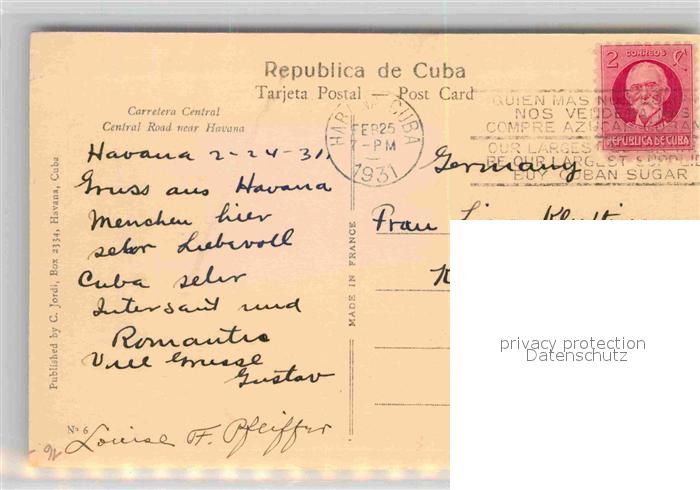 Republica de Cuba
Tarjeta Postal — Post Card
Carretera Central
Central Road near Havana
2 CORREOS 2
REPUBLICA DE CUBA
HABANA CUBA
FEB 25
7-PM
1931
QUIEN MAS NOS
NOS VENDE
COMPRE AZUCAR
OUR LARGEST
BE OUR LARGEST
BUY CUBAN SUGAR
Havana 2-24-31
Gruss aus Havana
Menchen hier
sehr Liebevoll
Cuba sehr
Intersant und
Romantic
Viel Grusse
Gustav
Louise F. Pfeiffer
Germany
Frau
Published by C. Jordi, Box 2334, Havana, Cuba
MADE IN FRANCE
Nº 6
privacy protection
Datenschutz